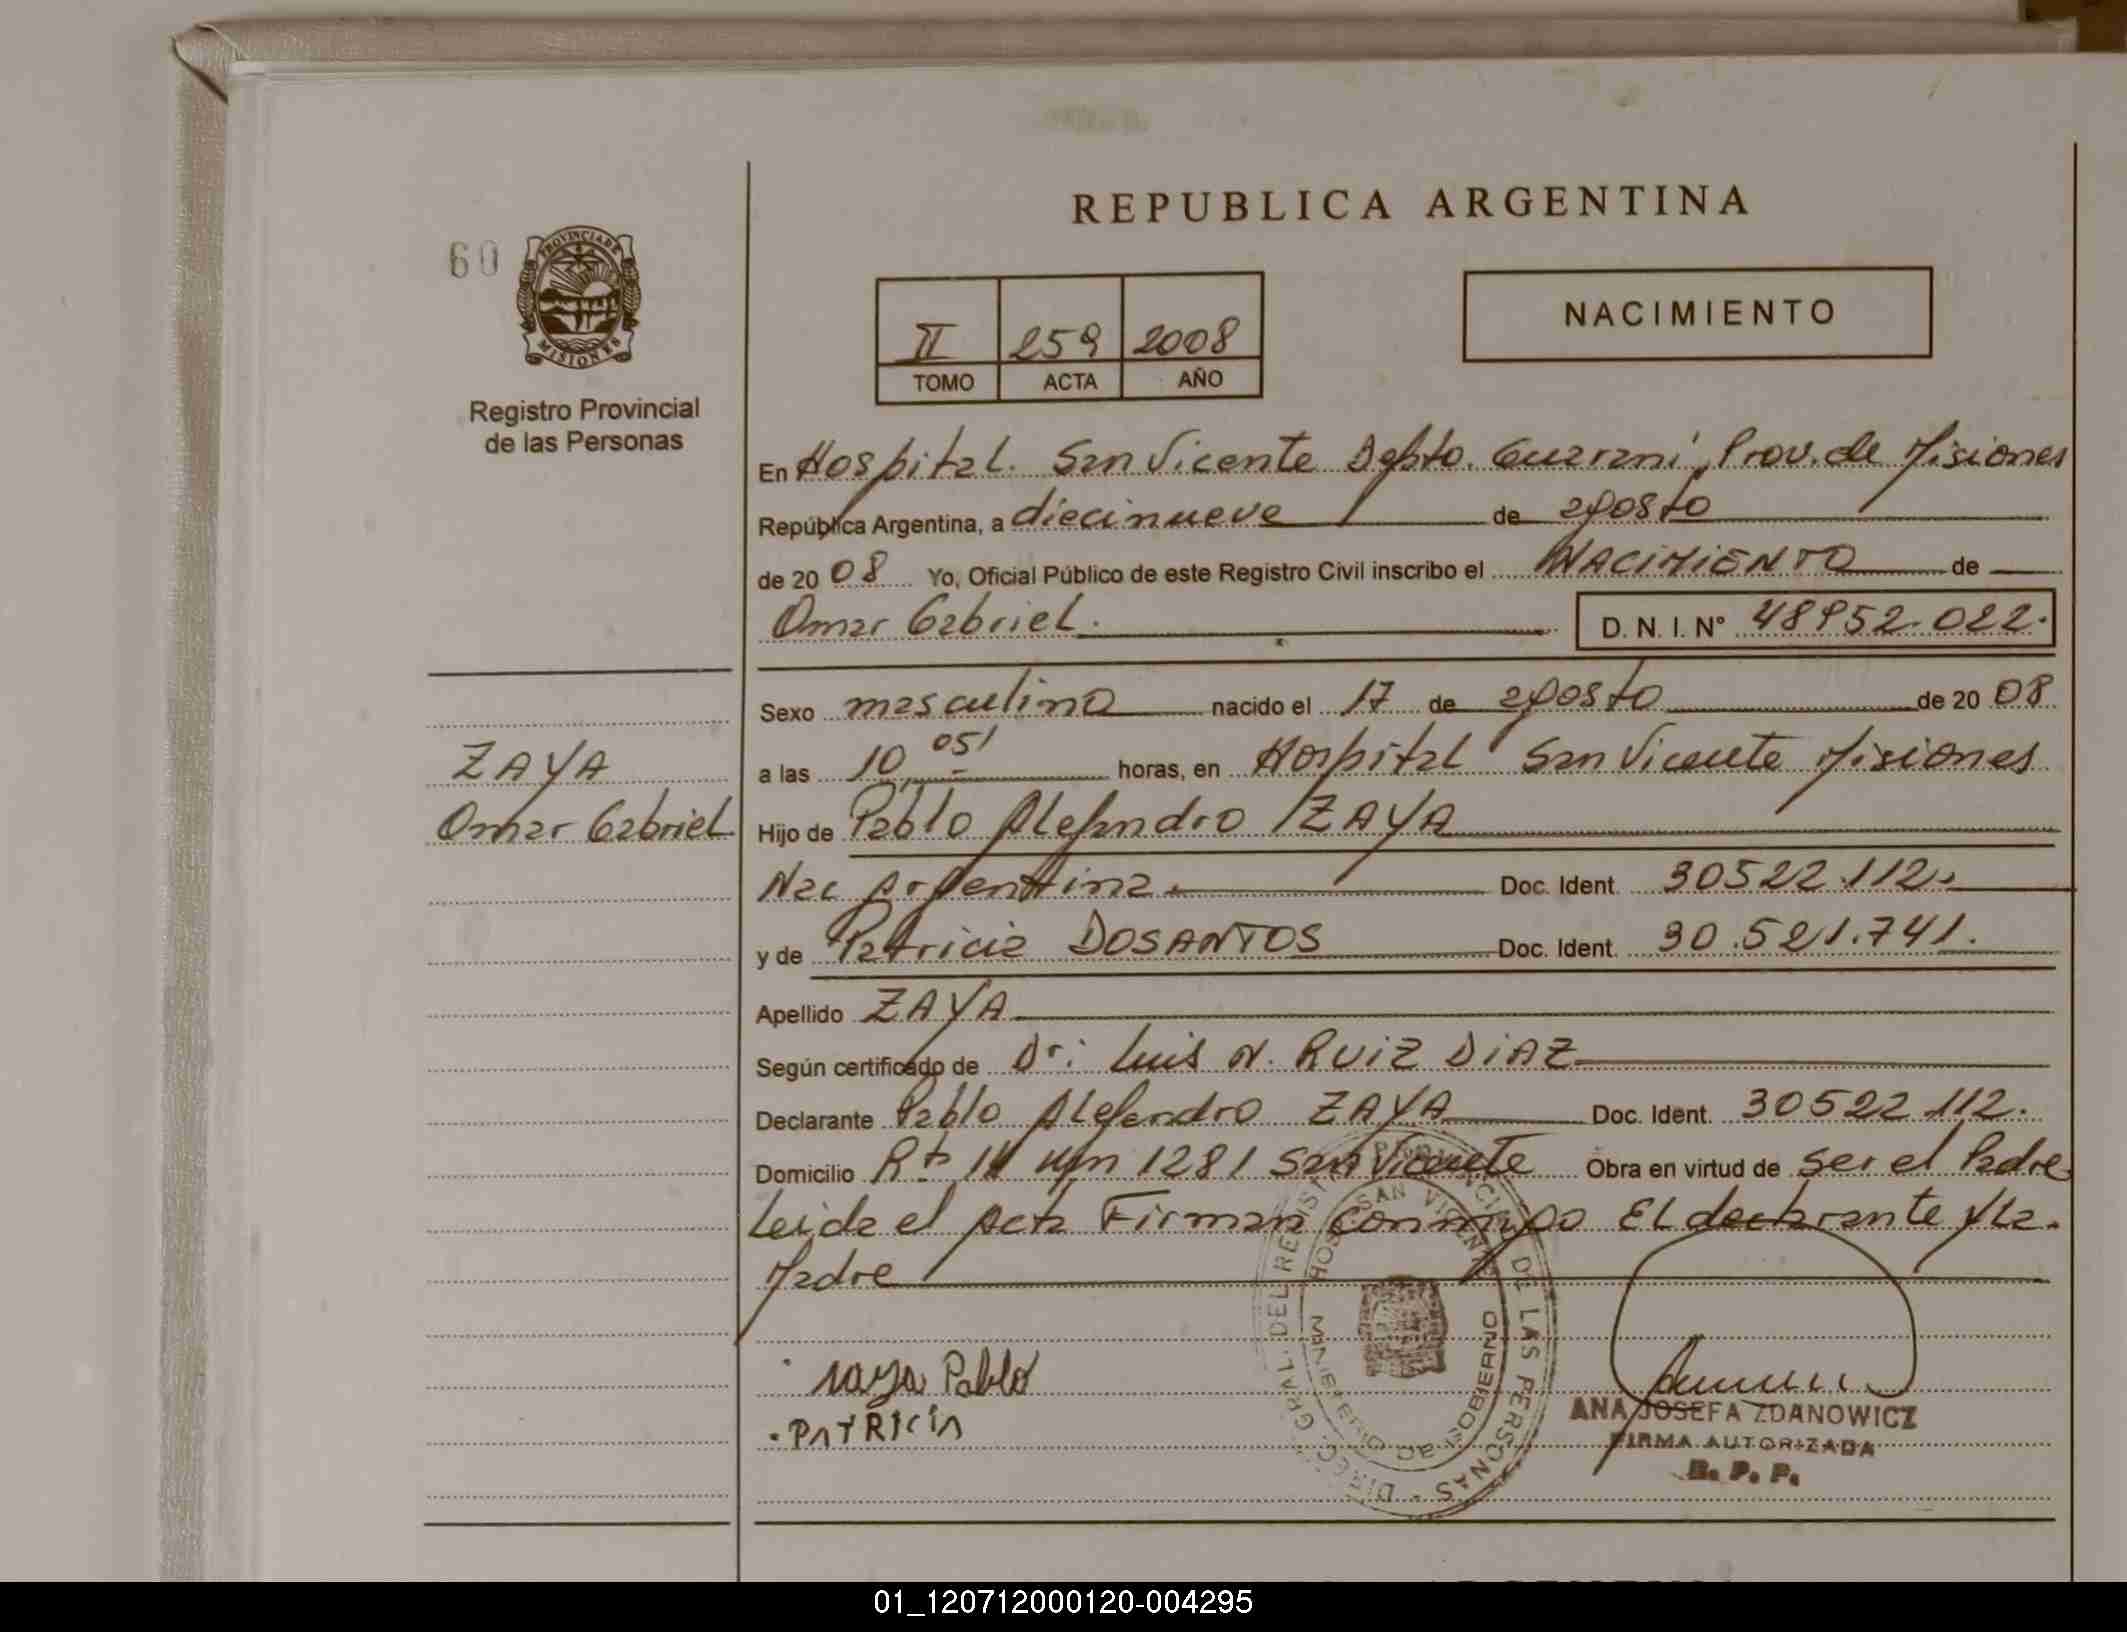 REPUBLICA ARGENTINA
60
PROVINCIA DE
MISIONES
Registro Provincial
de las Personas
II 259 2008
TOMO ACTA AÑO
NACIMIENTO
En Hospital. San Vicente Depto. Guaraní, Prov. de Misiones
República Argentina, a diecinueve de agosto
de 20 08 Yo, Oficial Público de este Registro Civil inscribo el NACIMIENTO de
Omar Gabriel. D. N. I. N° 48952.022.
Sexo masculino nacido el 17 de agosto de 20 08
a las 10,05' horas, en Hospital San Vicente Misiones
ZAYA
Omar Gabriel
Hijo de Pablo Alejandro ZAYA
Nac Argentina. Doc. Ident. 30522.112.
y de Patricia DOSANTOS Doc. Ident. 30.521.741.
Apellido ZAYA
Según certificado de Dr: Luis N. RUIZ DIAZ
Declarante Pablo Alejandro ZAYA Doc. Ident. 30522.112.
Domicilio Rta 14 Km 1281 San Vicente Obra en virtud de ser el Padre
Leida el Acta Firman conmigo El declarante y la.
Madre
DIREC. GRAL. DEL REGISTRO PROVINCIAL DE LAS PERSONAS
HOSP. SAN VICENTE
MINISTERIO DE GOBIERNO
zaya Pablo
PATRICIA
ANA JOSEFA ZDANOWICZ
FIRMA AUTORIZADA
R. P. P.
01_120712000120-004295